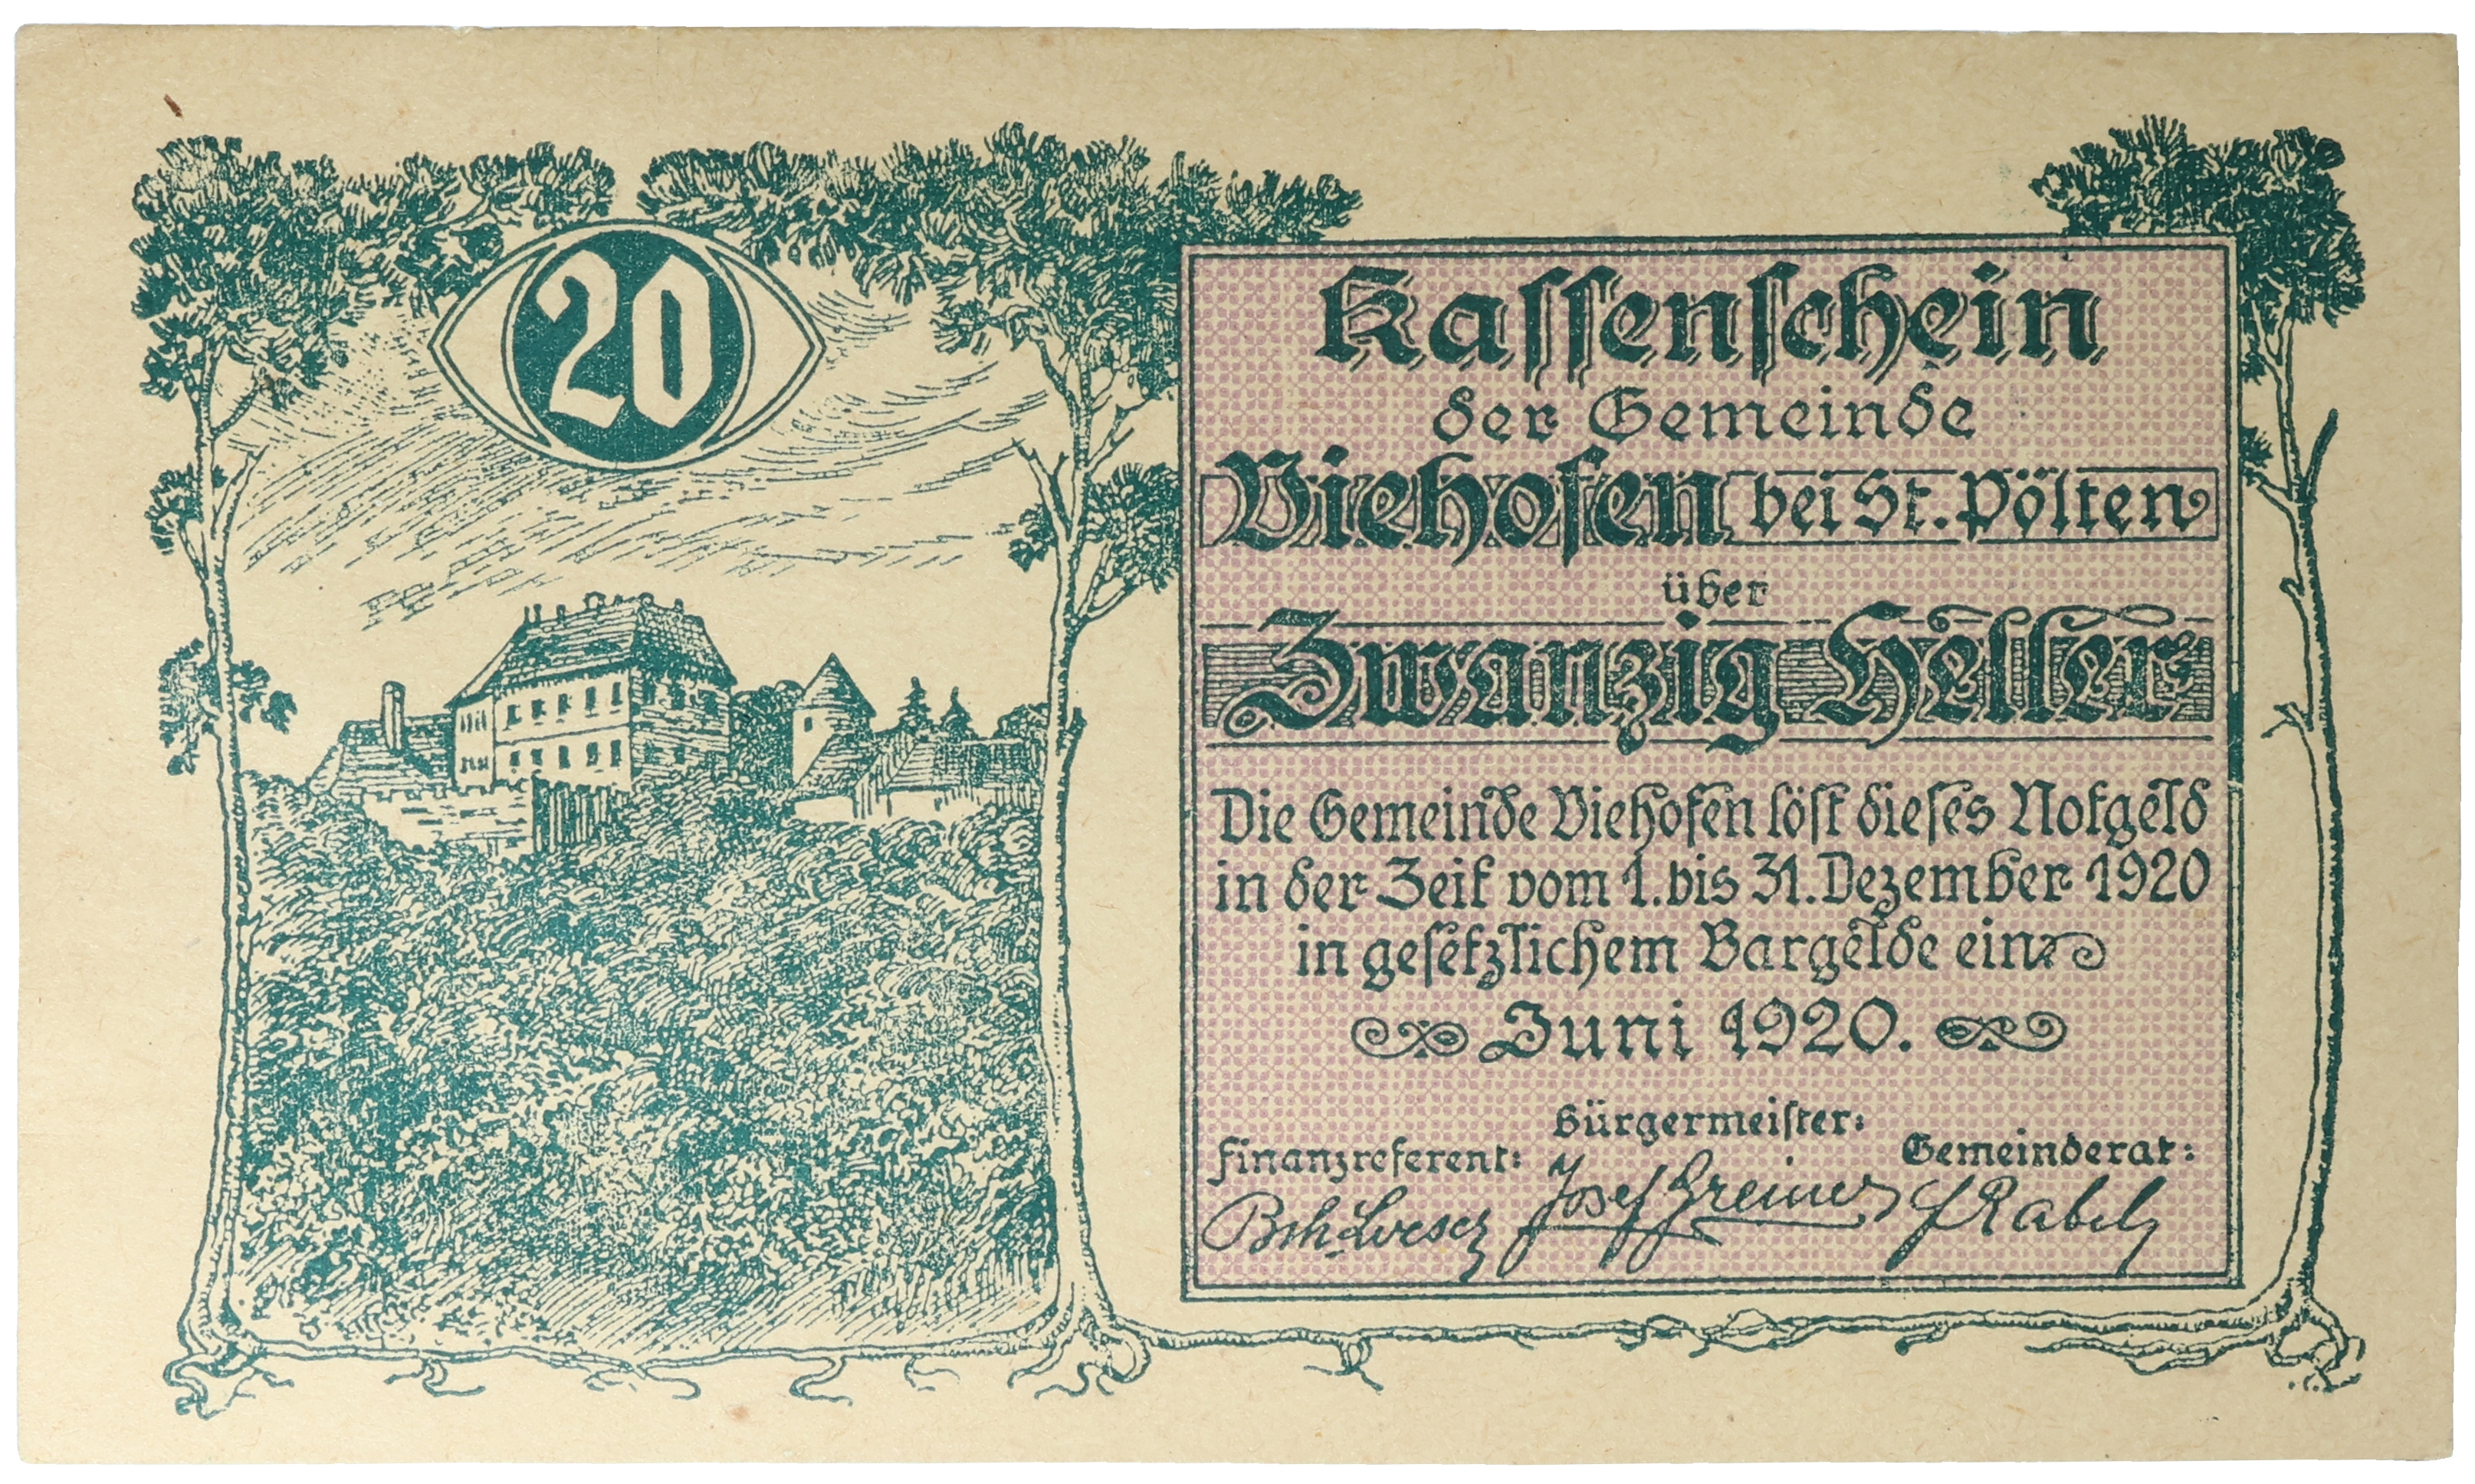 20
Kassenschein
der Gemeinde
Viehofen bei St. Pölten
über
Zwanzig Heller
Die Gemeinde Viehofen löst dieses Notgeld
in der Zeit vom 1. bis 31. Dezember 1920
in gesetzlichem Bargelde ein
Juni 1920.
Bürgermeister:
Finanzreferent: Gemeinderat:
Josef Greiner